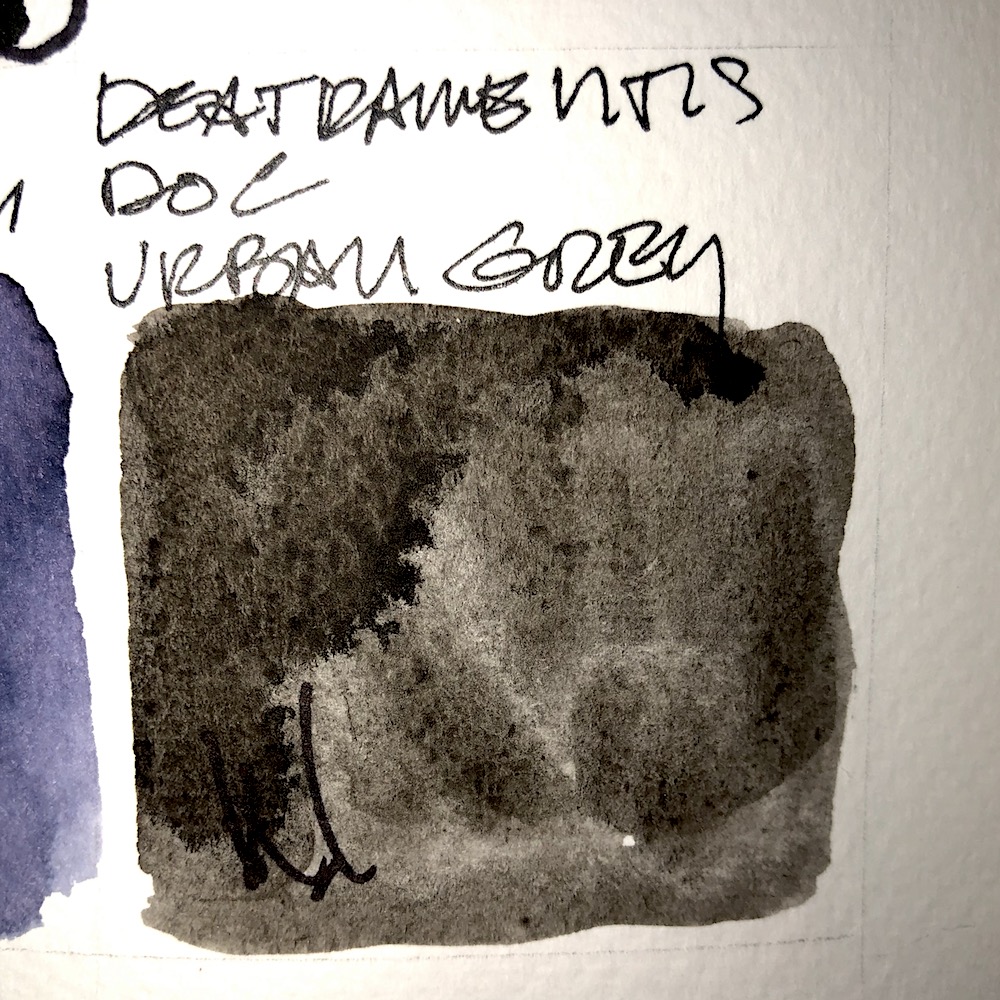 DEATRAMENTIS
DOC
URBAN GREY